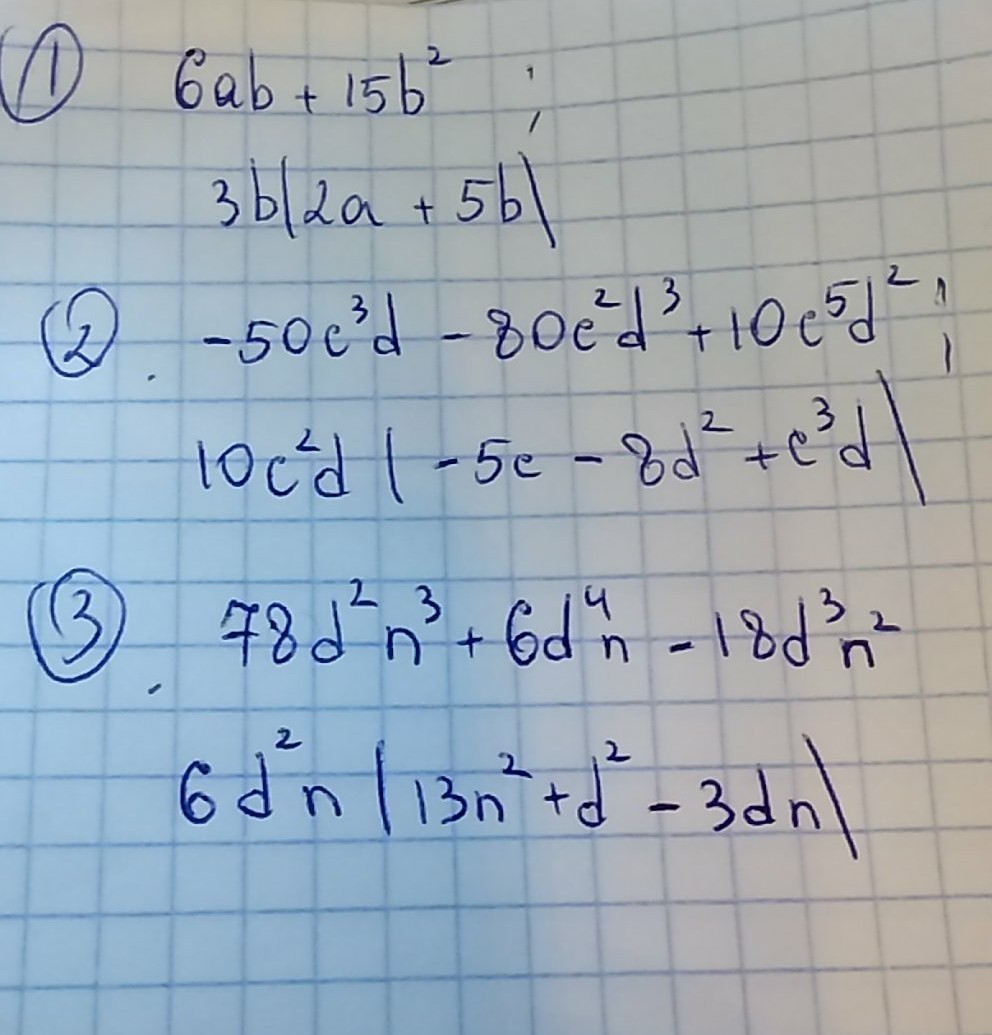 ① 6ab + 15b² ;
3b(2a + 5b)
② . -50c³d - 80c²d³ + 10c⁵d² ;
10c²d ( -5c - 8d² + c³d )
③ . 78d²n³ + 6d⁴n - 18d³n²
6d²n ( 13n² + d² - 3dn )